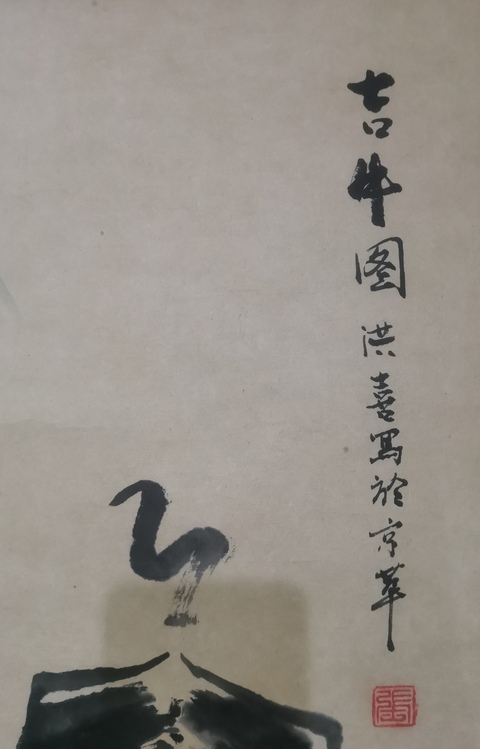 吉牛图 洪喜写於京華